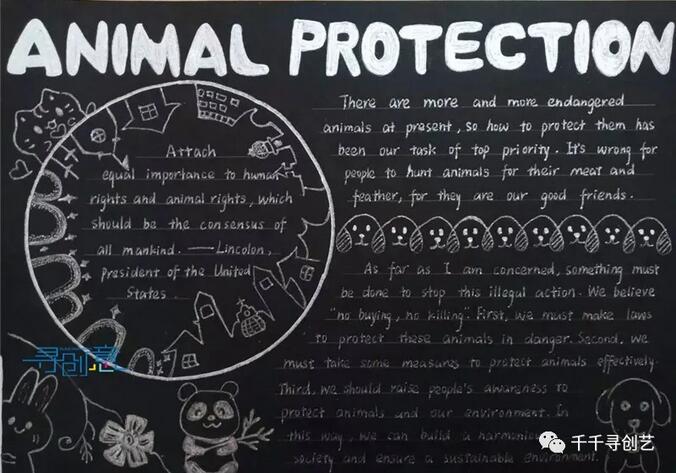 ANIMAL PROTECTION
Attach
equal importance to human
rights and animal rights, which
should be the consensus of
all mankind. ——Lincolon,
president of the United
States.
There are more and more endangered
animals at present, so how to protect them has
been our task of top priority. It's wrong for
people to hunt animals for their meat and
feather, for they are our good friends.
As far as I am concerned, something must
be done to stop this illegal action. We believe
"no buying, no killing". First, we must make laws
to protect these animals in danger. Second, we
must take some measures to protect animals effectively.
Third, we should raise people's awareness to
protect animals and our environment. In
this way, we can build a harmonious
society and ensure a sustainable environment.
寻创意
千千寻创艺